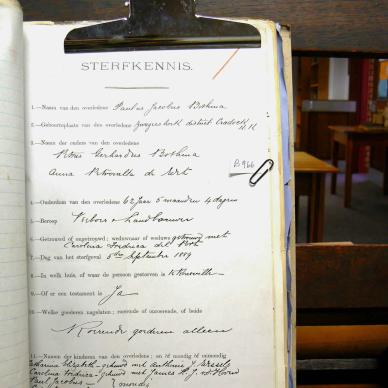 STERFKENNIS.
1.—Naam van den overledene Paulus Jacobus Bothma
2.—Geboorteplaats van den overledene Zwagershoek district Cradock
3.—Namen der ouders van den overledene
Petrus Gerhardus Bothma
B.966
Anna Petronella de Wet
4.—Ouderdom van den overledene 62 jaar 5 maanden 4 dagen
5.—Beroep Veeboer & Landbouwer
6.—Getrouwd of ongetrouwd; weduwnaar of weduwe getrouwd met
Carolina Fredrica
7.—Dag van het sterfgeval 5de September 1889
8.—In welk huis, of waar de persoon gestorven is
9.—Of er een testament is Ja
10.—Welke goederen nagelaten; roerende of onroerende, of beide
Roerende goederen alleen
11.—Namen der kinderen van den overledene; en of mondig of onmondig
Catharina Elizabeth - gehuwd met
Carolina Fredrica - gehuwd met James
Paul Jacobus - mondig